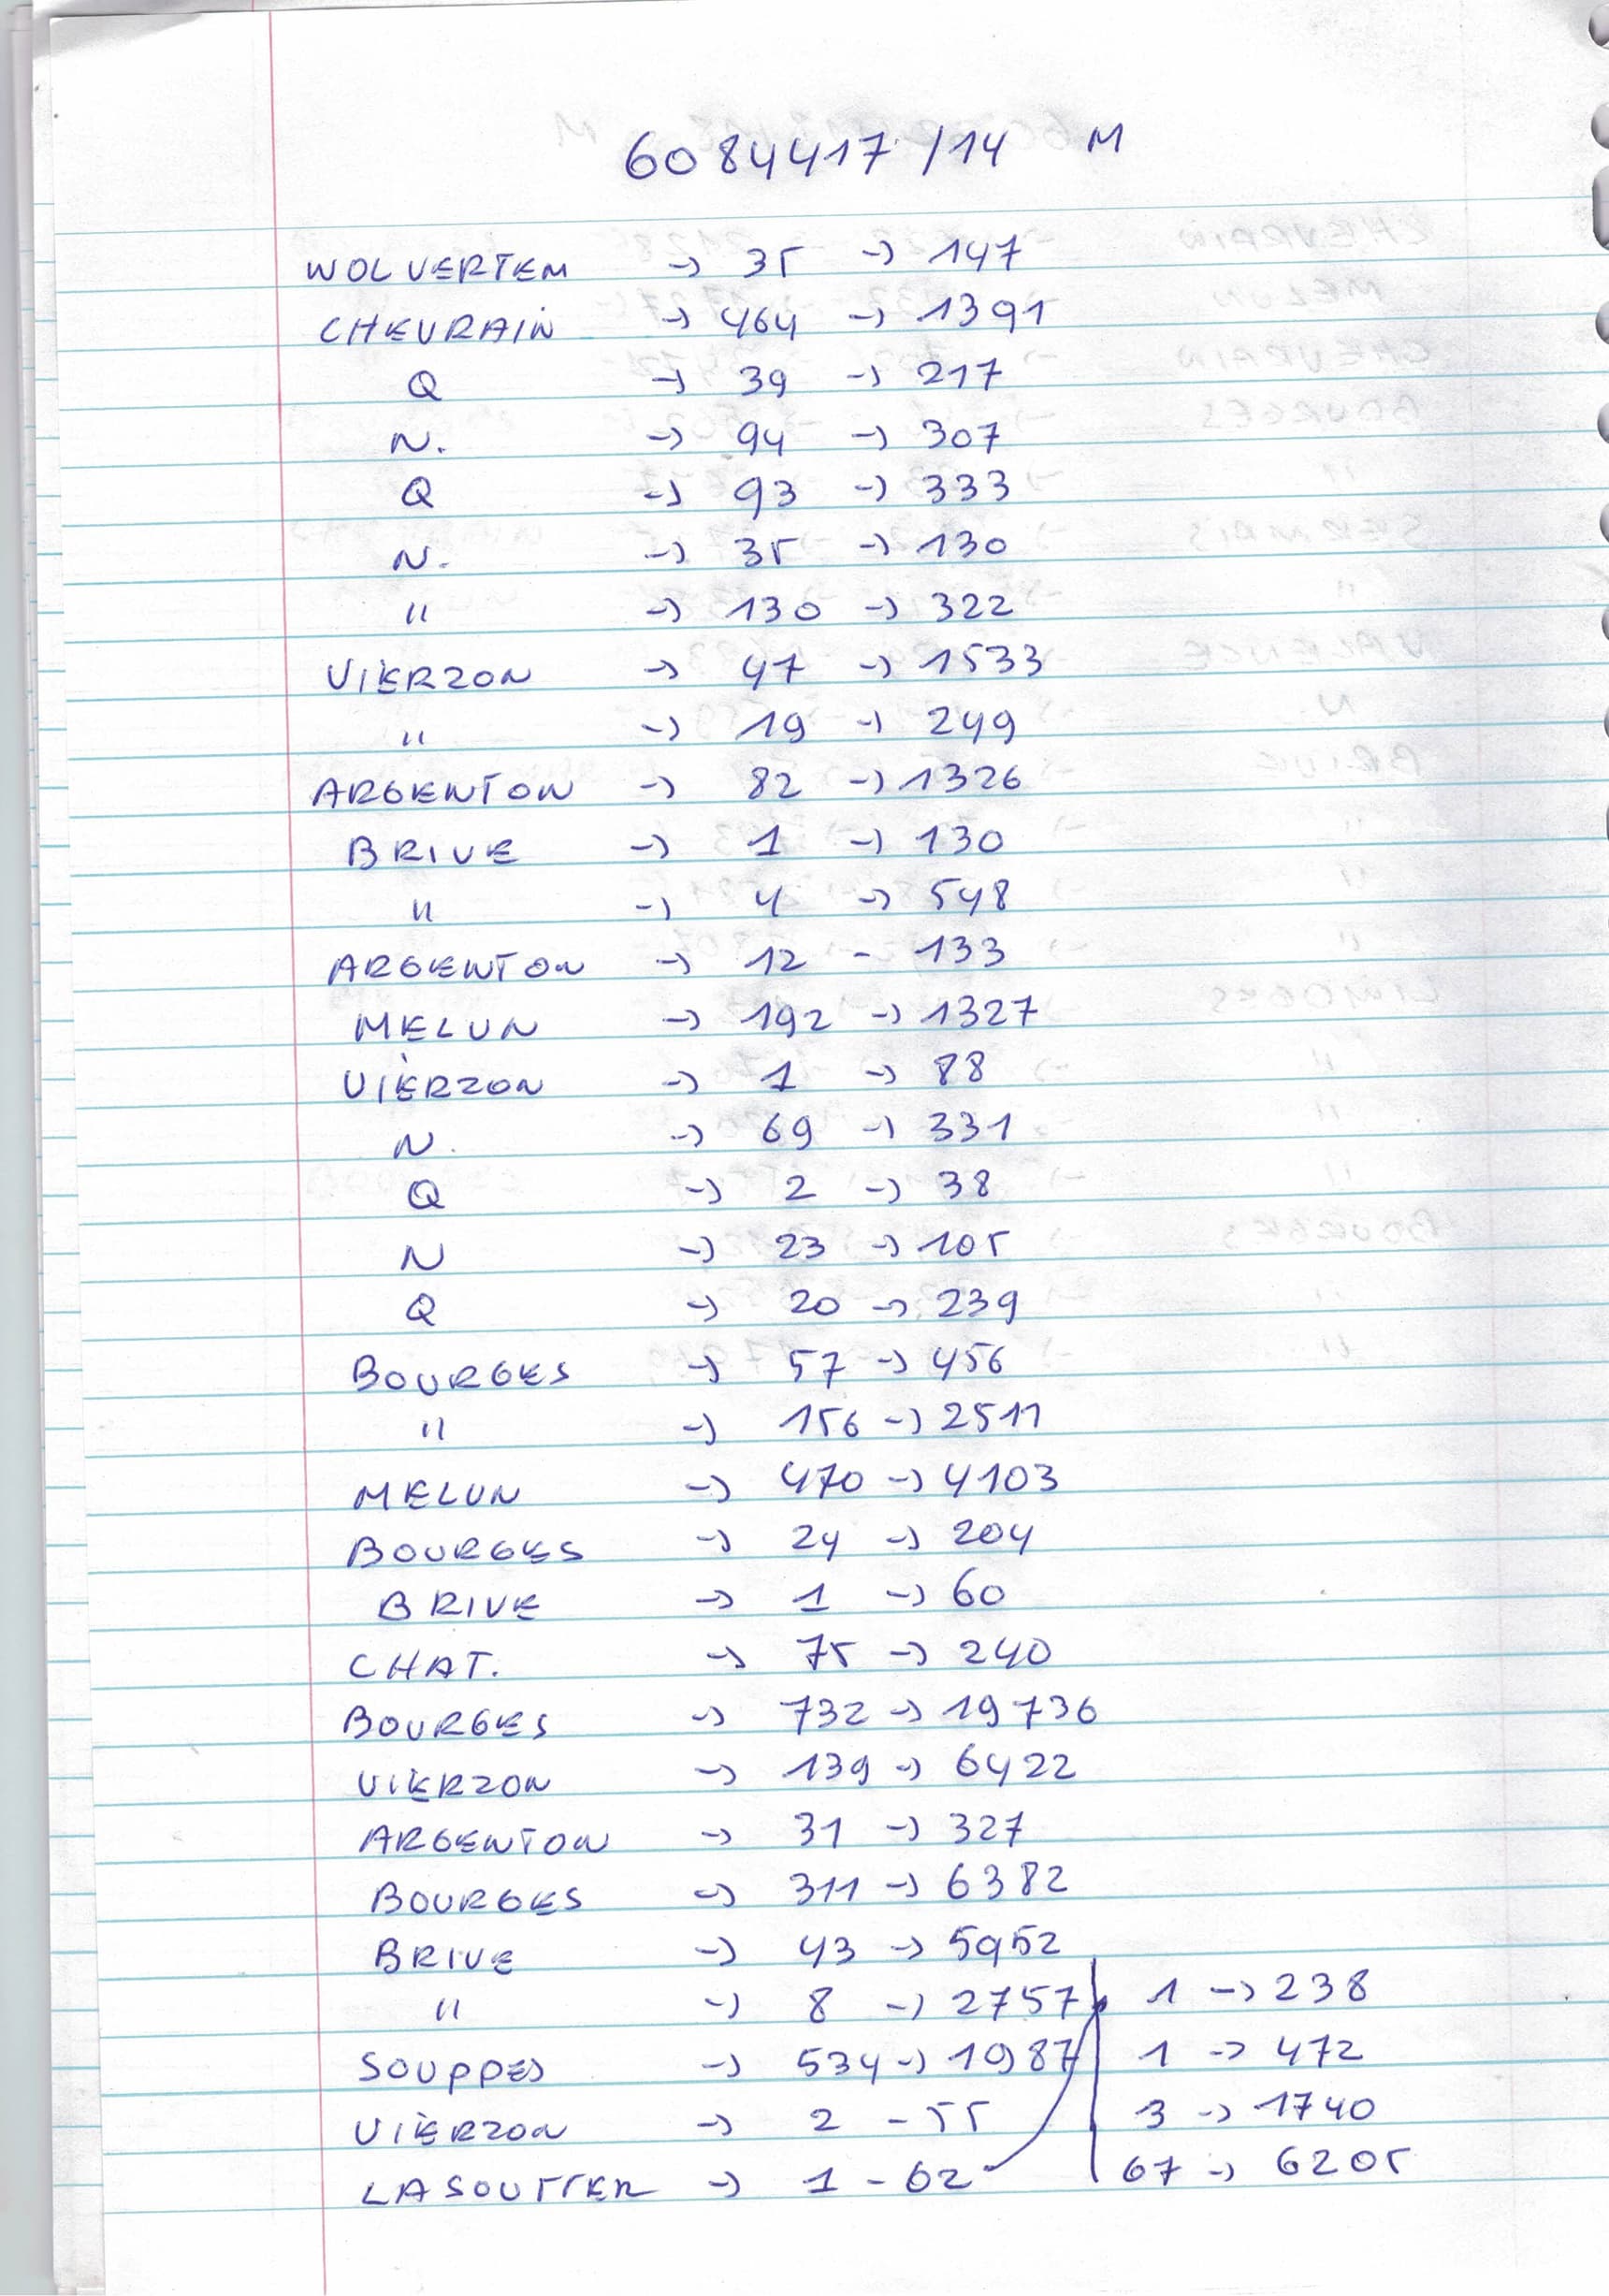 6084417/14 M
WOLVERTEM -> 35 -> 147
CHEVRAIN -> 464 -> 1391
Q -> 39 -> 217
N. -> 94 -> 307
Q -> 93 -> 333
N. -> 35 -> 130
" -> 130 -> 322
VIERZON -> 47 -> 1533
" -> 19 -> 249
ARGENTON -> 82 -> 1326
BRIVE -> 1 -> 130
" -> 4 -> 548
ARGENTON -> 12 - 133
MELUN -> 192 -> 1327
VIERZON -> 1 -> 88
N. -> 69 -> 331
Q -> 2 -> 38
N -> 23 -> 105
Q -> 20 -> 239
BOURGES -> 57 -> 456
" -> 156 -> 2511
MELUN -> 470 -> 4103
BOURGES -> 24 -> 204
BRIVE -> 1 -> 60
CHAT. -> 75 -> 240
BOURGES -> 732 -> 19736
VIERZON -> 139 -> 6422
ARGENTON -> 31 -> 327
BOURGES -> 311 -> 6382
BRIVE -> 43 -> 5952
" -> 8 -> 2757 1 -> 238
SOUPPES -> 534 -> 1987 1 -> 472
VIERZON -> 2 - 55 3 -> 1740
LASOUTTER -> 1 - 62 67 -> 6205